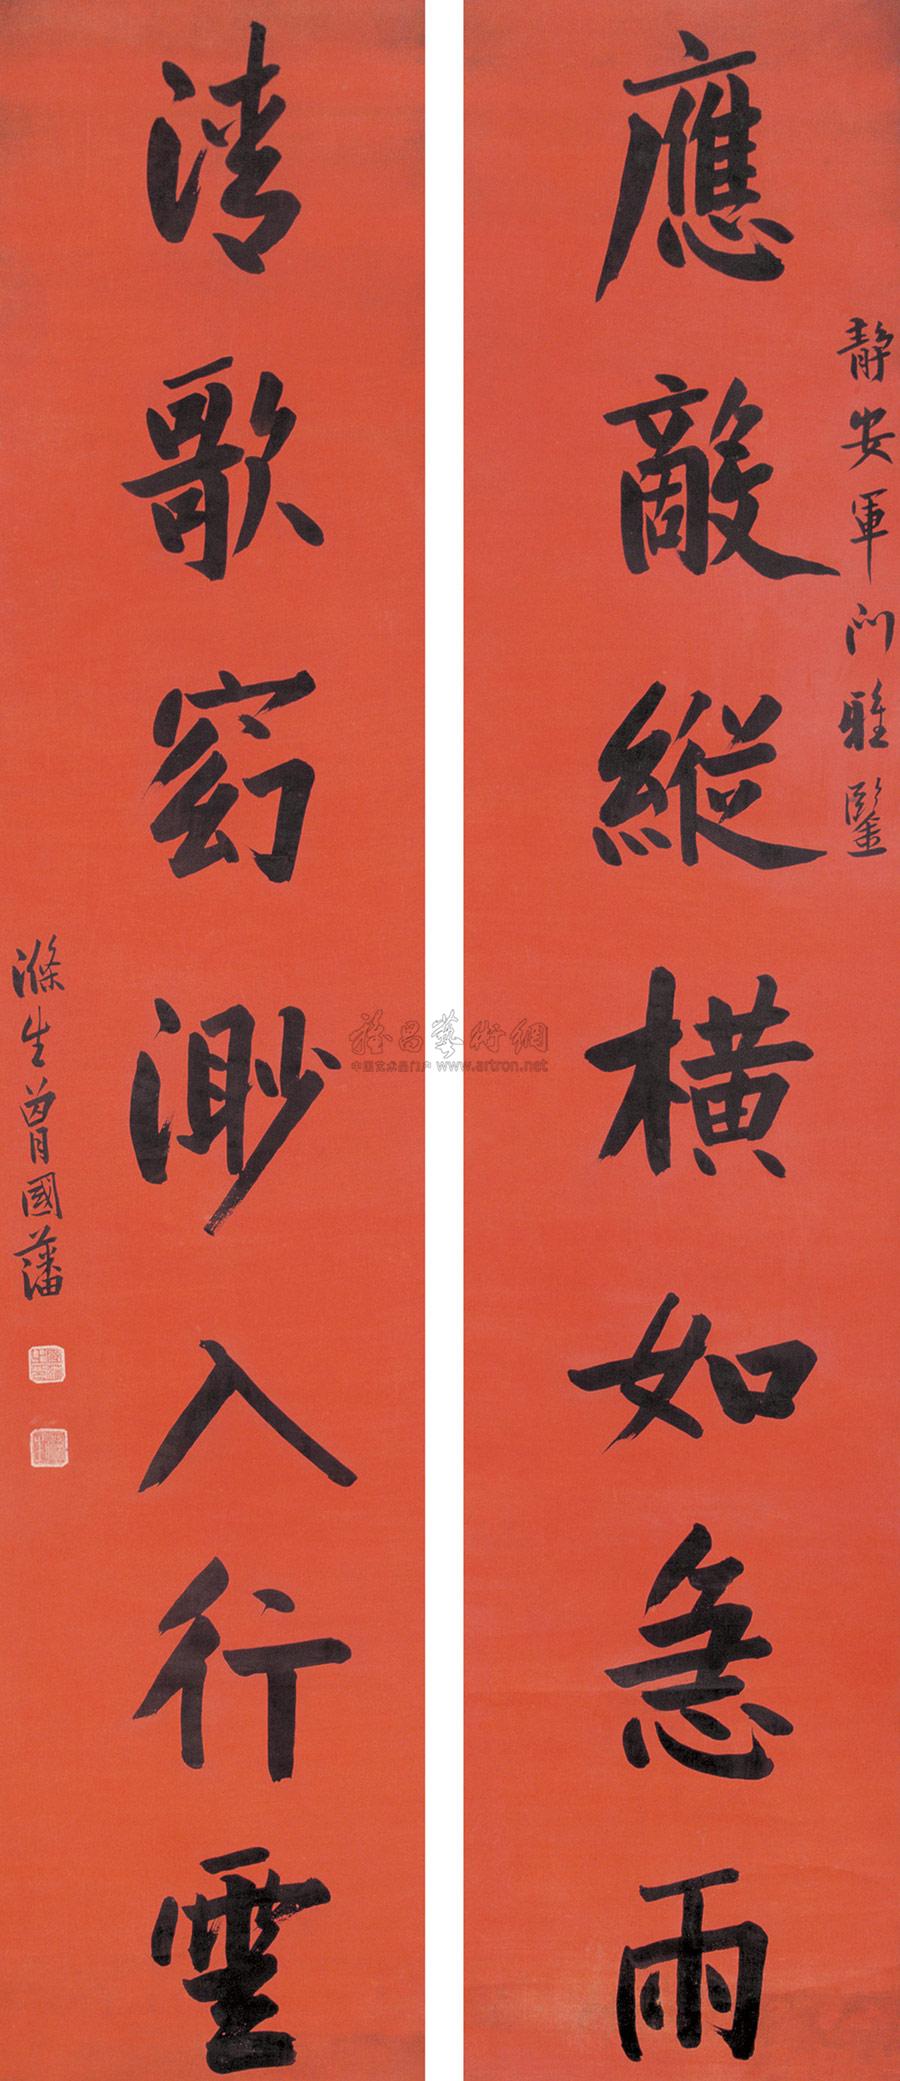 靜安軍门雅鑒
應敵縱橫如急雨
清歌窈渺入行雲
滌生曾國藩
雅昌藝術網
中国艺术品门户 www.artron.net